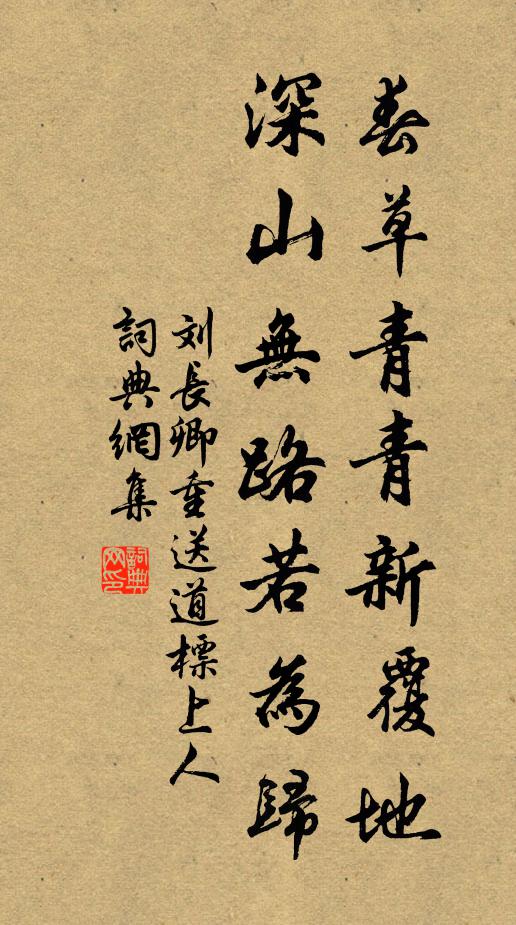 春草青青新覆地
深山無路若為歸
刘長卿重送道標上人
詞典網集
詞典网印